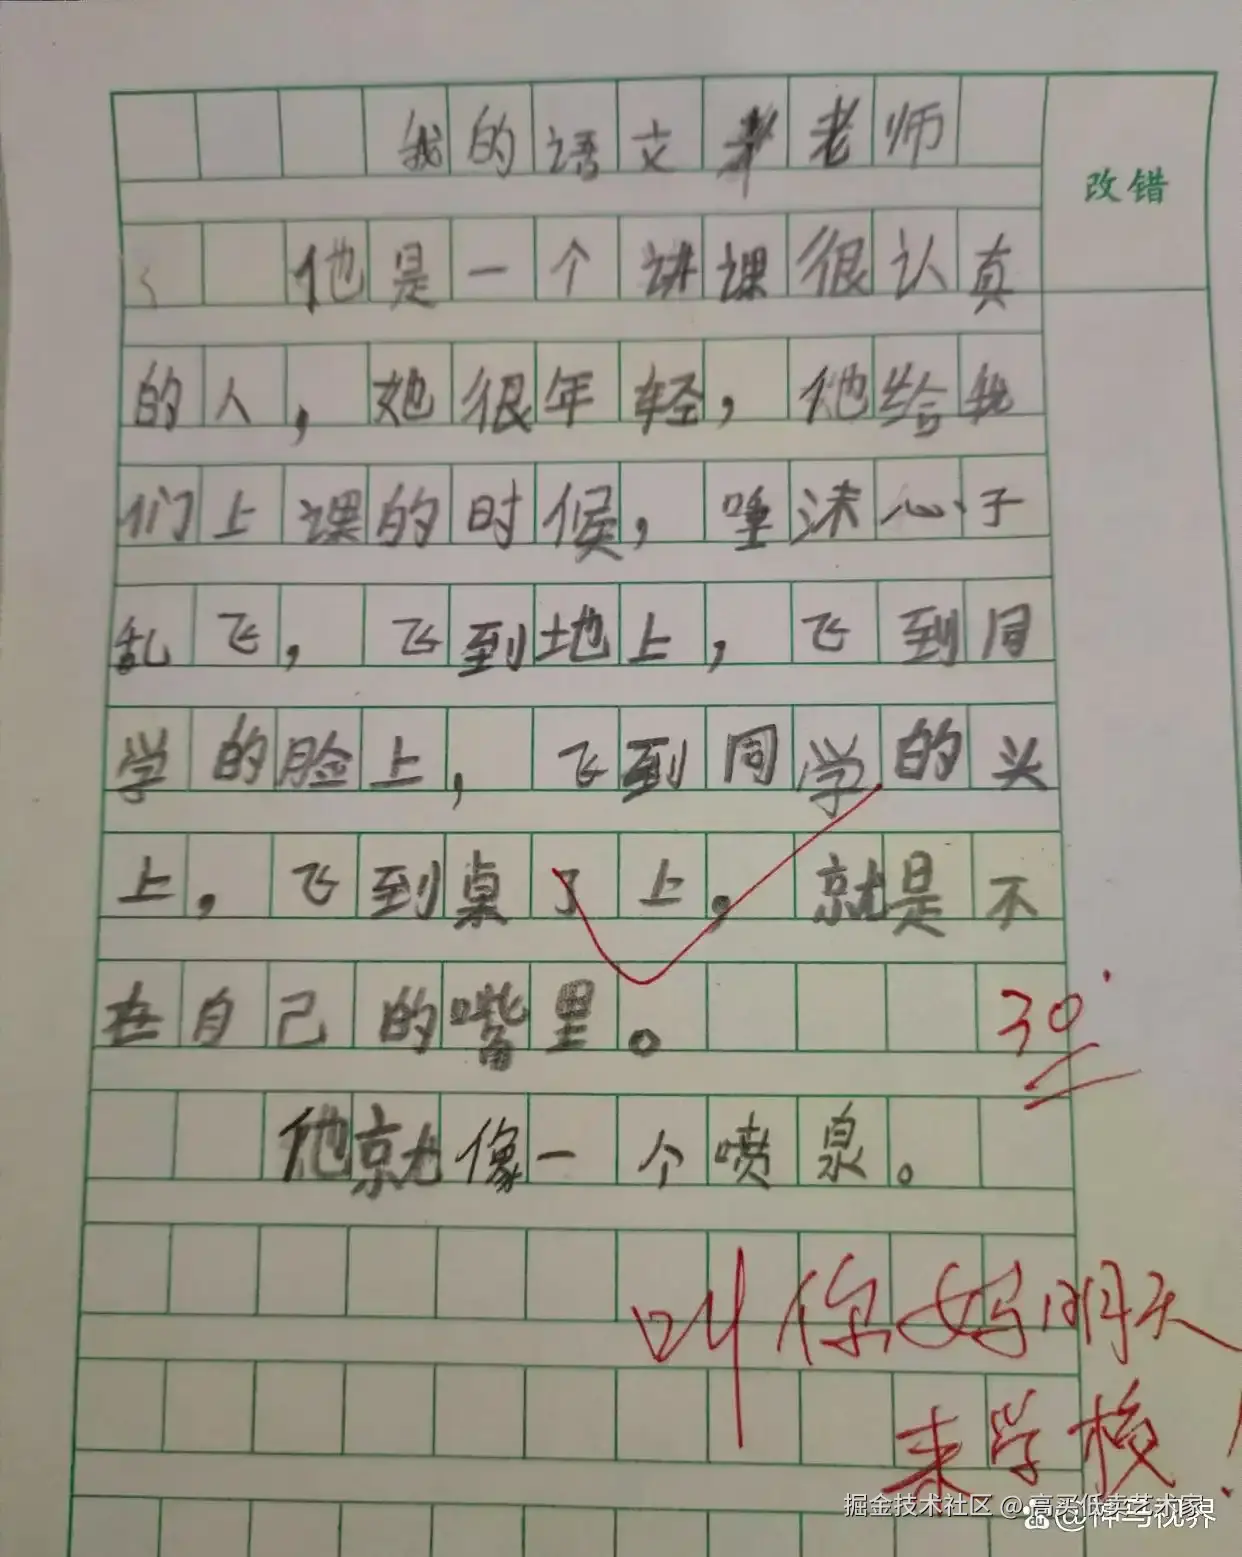 我的语文老师
改错
他是一个讲课很认真
的人，她很年轻，他给我
们上课的时候，唾沫心子
乱飞，飞到地上，飞到同
学的脸上，飞到同学的头
上，飞到桌了上，就是不
在自己的嘴里。
30
他就像一个喷泉。
叫你妈明天
来学校！
掘金技术社区 @ 高买低卖艺术家